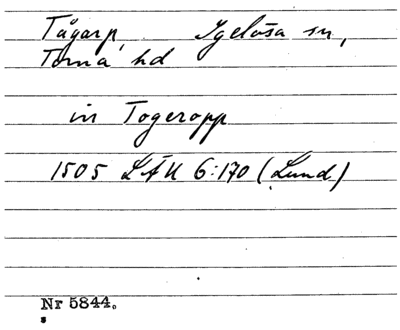 Tågarp, Igelösa sn,
Torna hd
in Togeropp
1505 LÄU 6:170 (Lund)
Nr 5844.